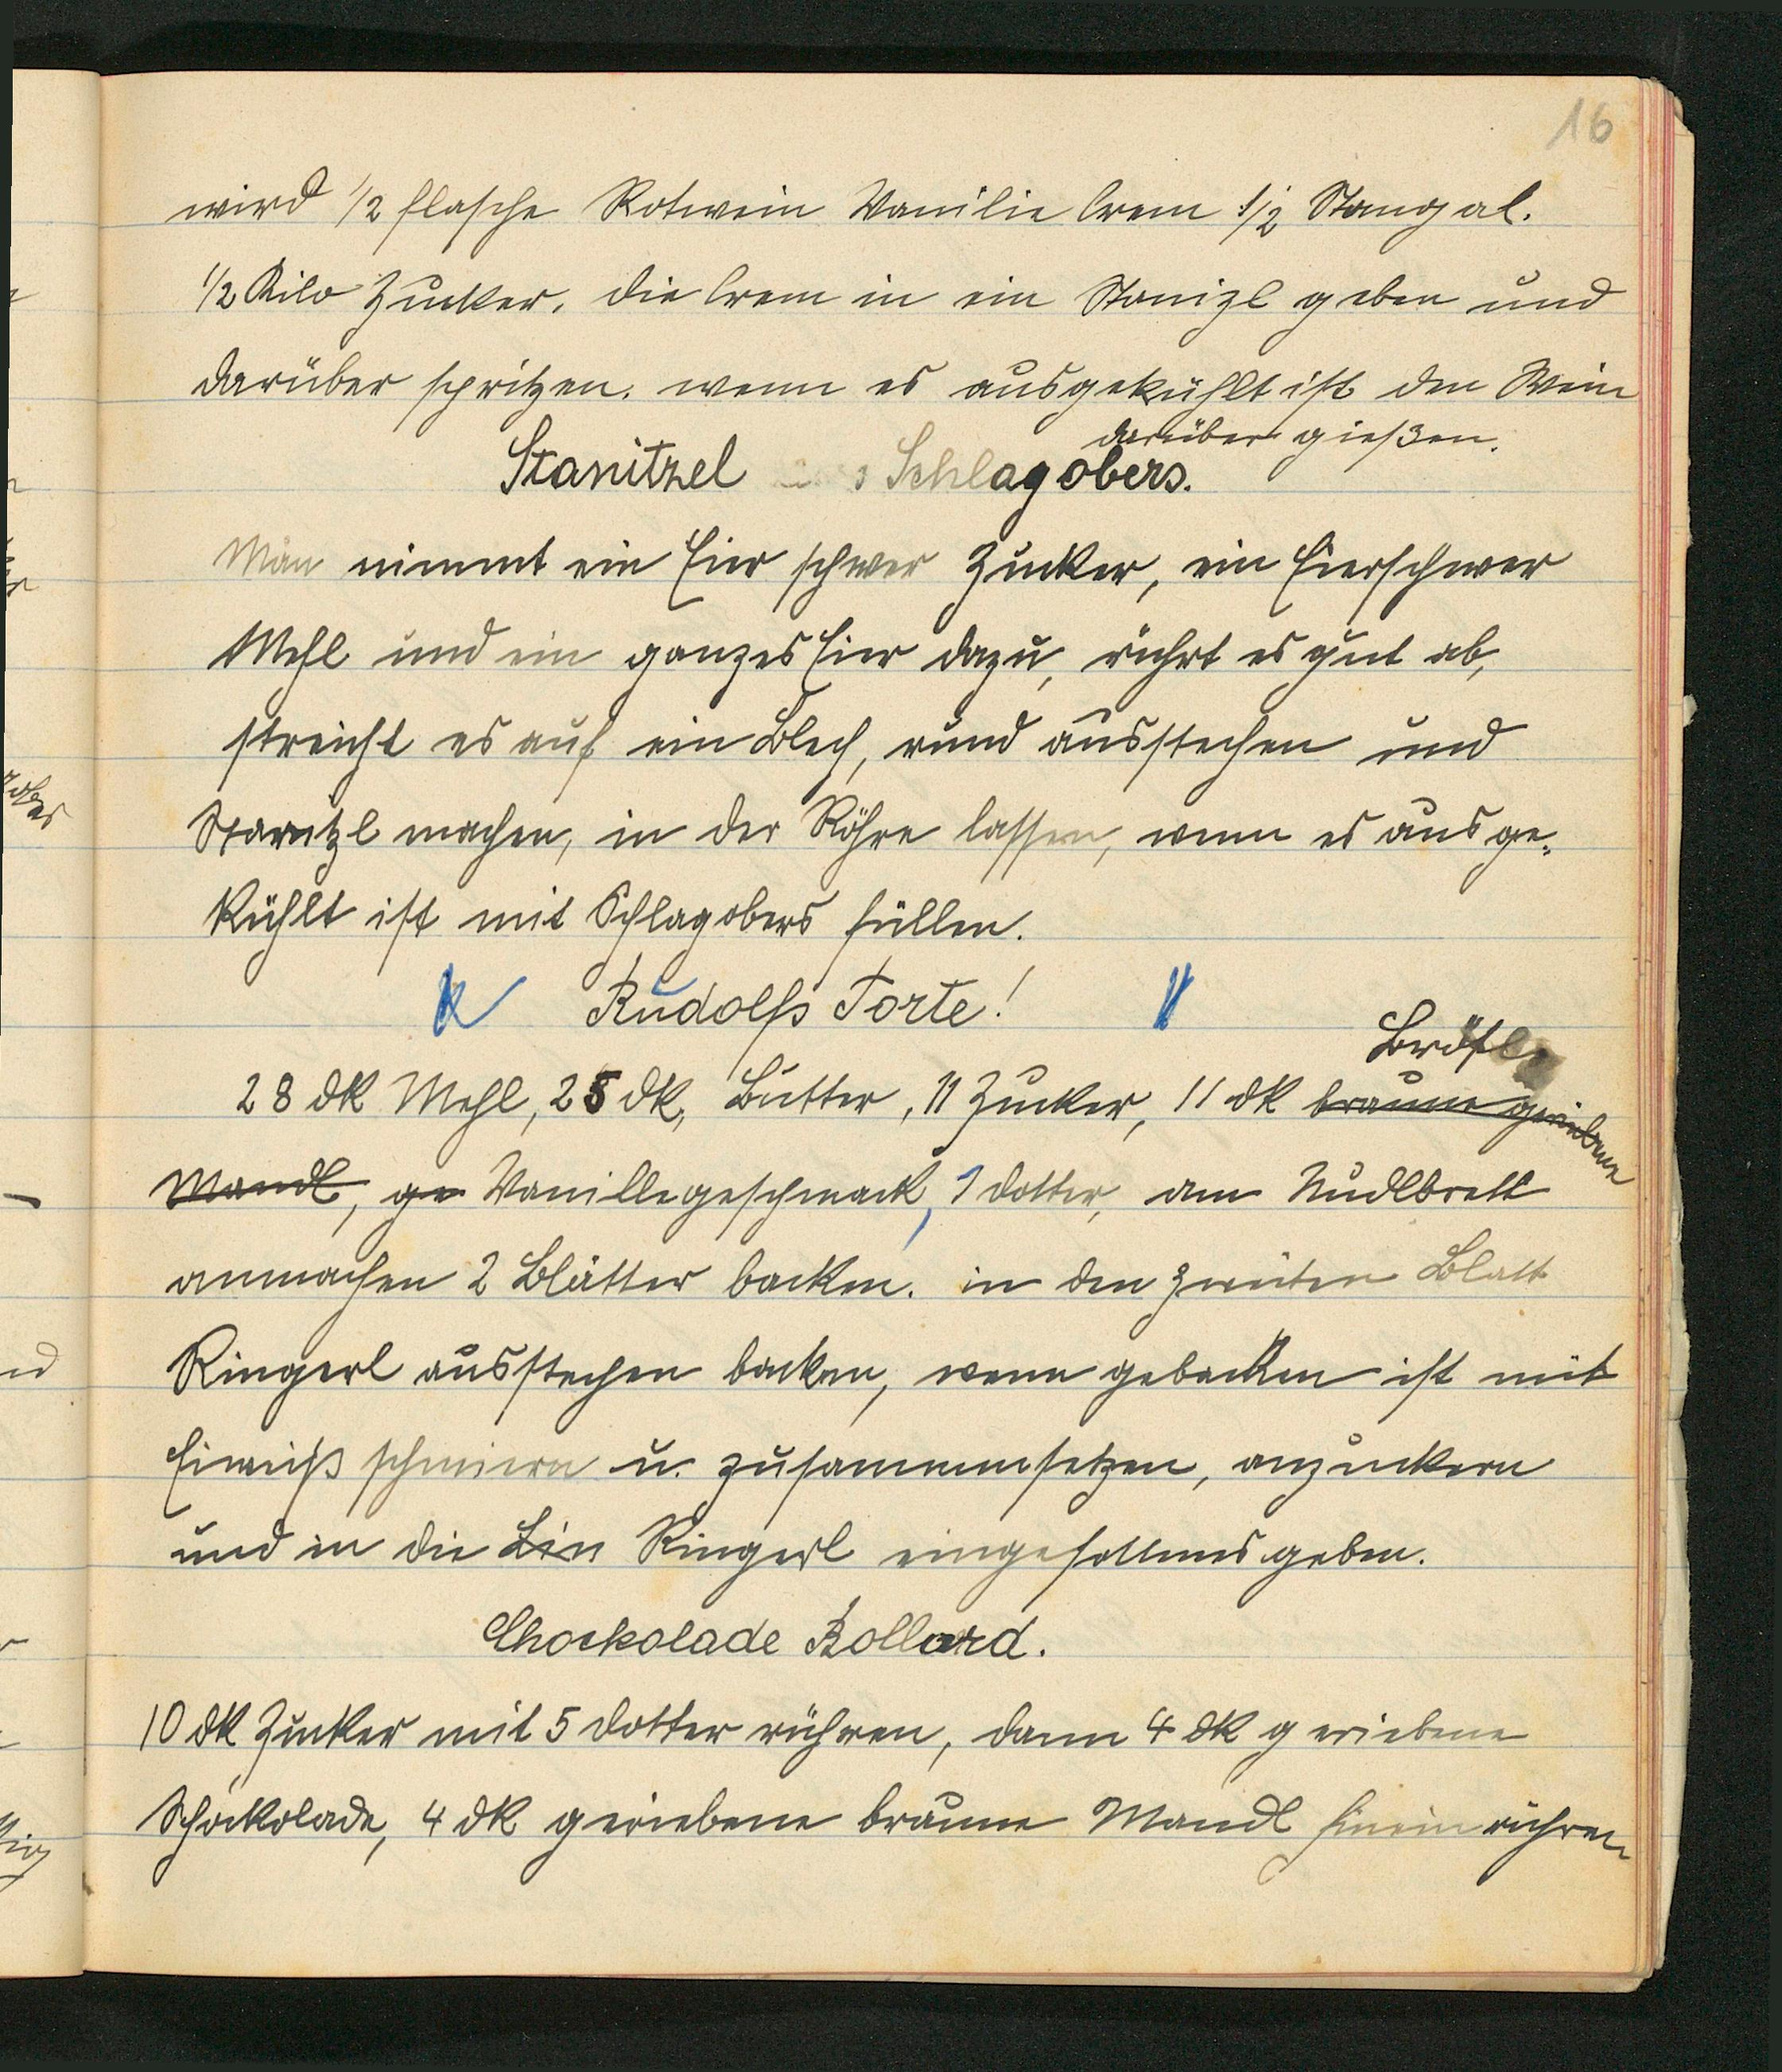 16
wird 1/2 flasche Rotwein Vanilie Crem 1/2 Stangal.
1/2 Kilo Zucker. die Crem in ein Stanizl geben und
darüber spritzen. wenn es ausgekühlt ist den Wein
darüber gießen.
Stanitzel Schlagobers.
Man nimmt ein Eier schwer Zucker, ein Eierschwer
Mehl und ein ganzes Eier dazu, rührt es gut ab,
streicht es auf ein Blech, rund ausstechen und
Stanitzl machen, in der Röhre lassen, wenn es ausge-
kühlt ist mit Schlagobers füllen.
Rudolfs Torte!
Brösl
28 dk Mehl, 25 dk, Butter, 11 Zucker, 11 dk braune geriebene
Mandl, ge Vanillegeschmack, 1 dotter, am Nudlbrett
anmachen 2 Blätter backen. in den zweiten Blatt
Ringerl ausstechen backen, wenn gebacken ist mit
Eiweiß schmiern u. zusammensetzen, anzuckern
und in die Lin Ringerl eingesottenes geben.
Chockolade Rollard.
10 dk Zucker mit 5 dotter rühren, dann 4 dk geriebene
Schockolade, 4 dk geriebene braune Mandl hinein rühren